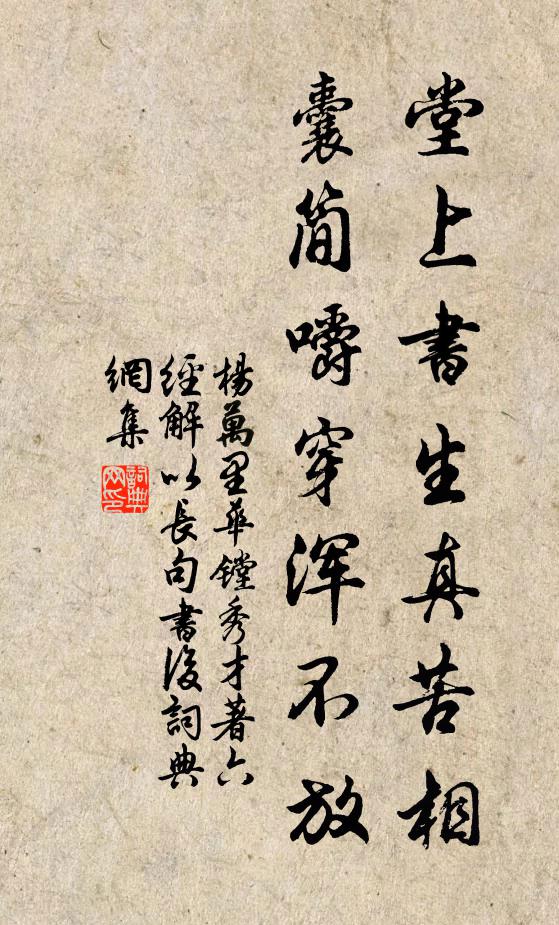 堂上書生真苦相
囊简嚼穿浑不放
楊萬里華鏜秀才著六
經解以長句書後詞典
網集
詞典網印